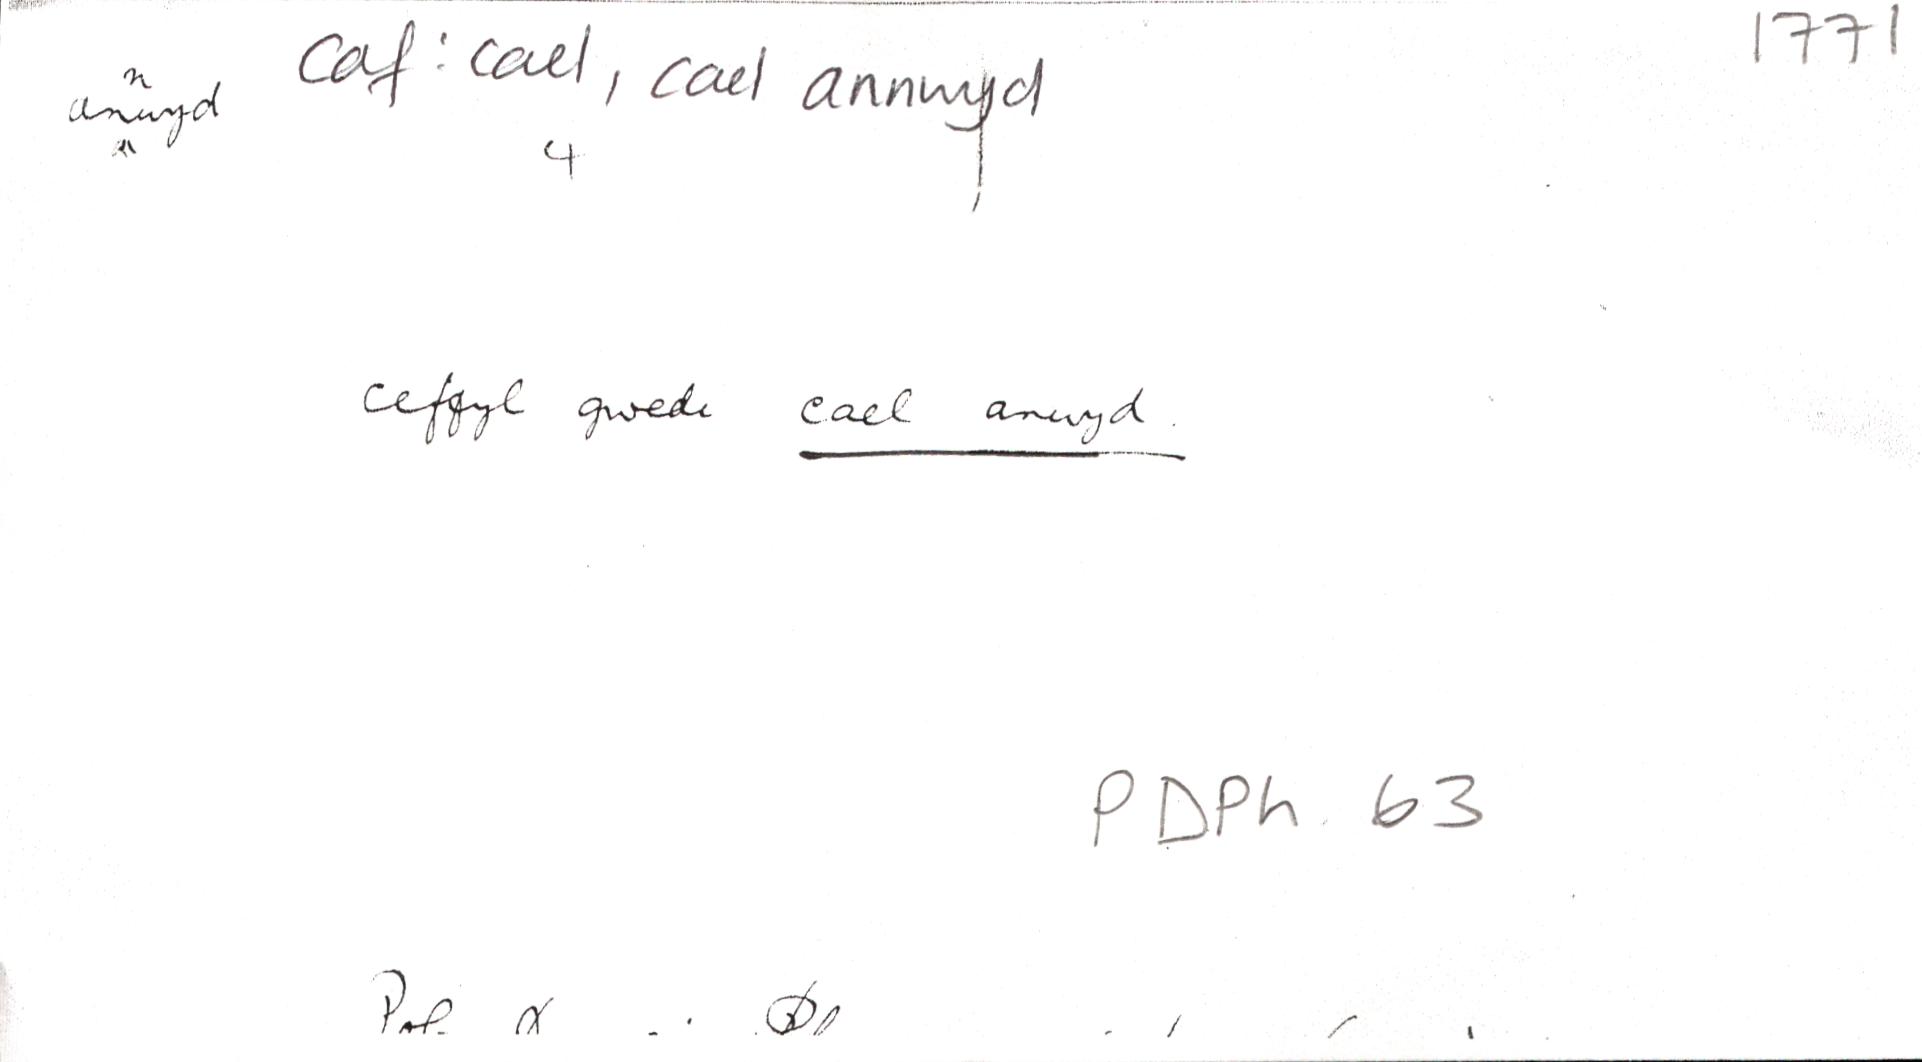 1771
caf: cael, cael annwyd
n
anwyd
4
ceffyl gwedi cael anwyd.
PDPh. 63